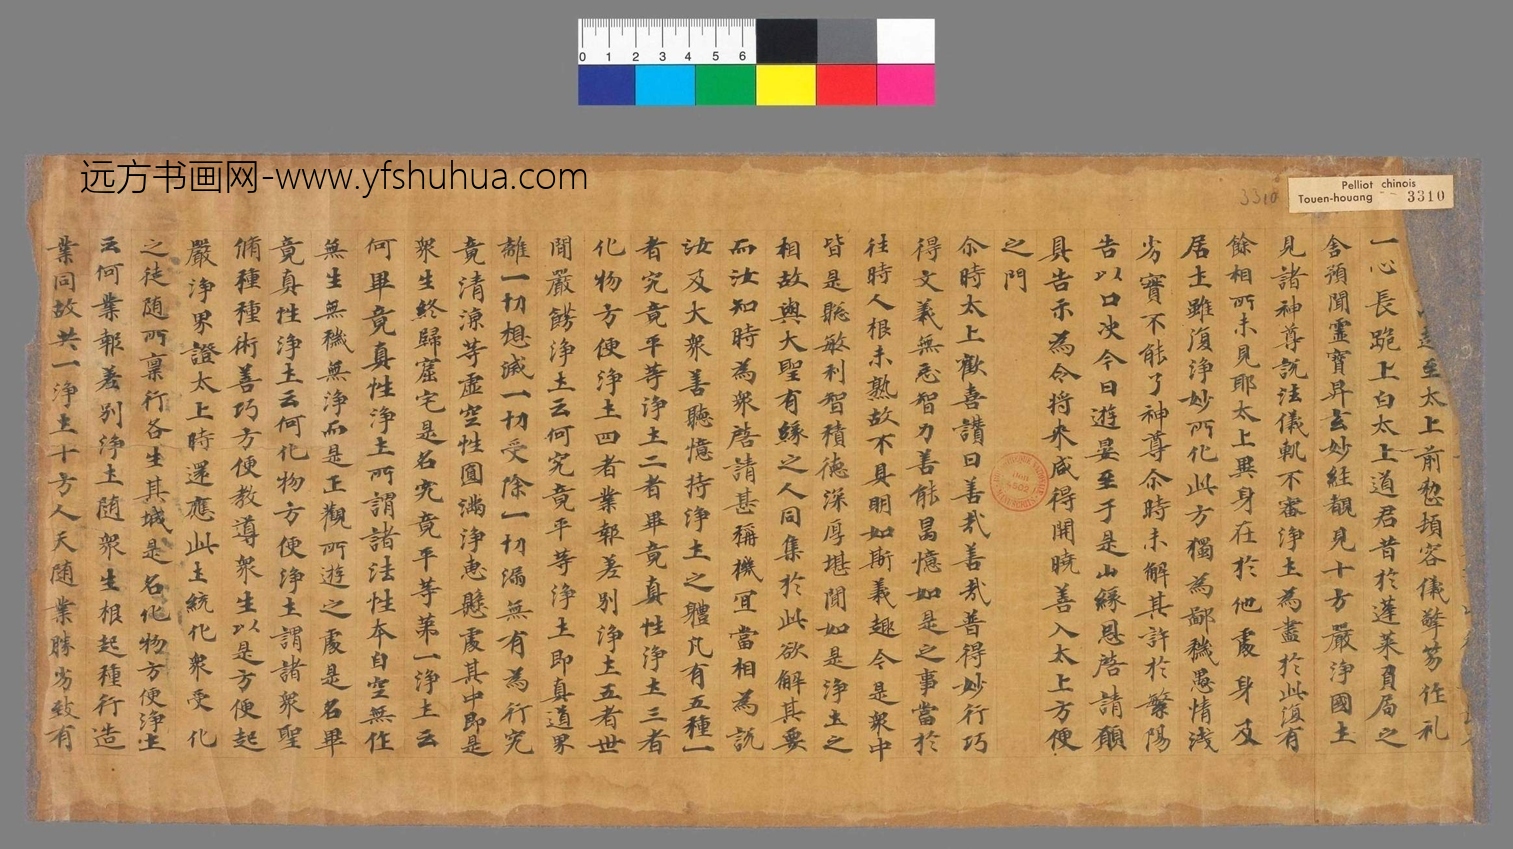 远方书画网-www.yfshuhua.com
0 1 2 3 4 5 6
3310
Pelliot chinois
Touen-houang 3310
至太上前愁頓容儀擎笏作礼
一心長跪上白太上道君昔於蓬萊負局之
舍預聞靈寶昇玄妙經覩見十方嚴淨國土
見諸神尊說法儀軌不審淨土為盡於此復有
餘相所未見耶太上異身在於他處身及
居土雖復淨妙所化此方獨為鄙穢愚情淺
劣實不能了神尊尒時未解其許於繁陽
告以口决今日遊宴至于是山緣恩啓請願
具告示為令將来咸得開曉善入太上方便
之門
尒時太上歡喜讚曰善哉善哉普得妙行巧
得文義無忘智力善能昌憶如是之事當於
往時人根未熟故不具明如斯義趣今是衆中
皆是聡敏利智積德深厚堪聞如是淨土之
相故與大聖有緣之人同集於此欲解其要
而汝知時為衆啓請甚稱機冝當相為說
汝及大衆善聴憶持淨土之軆凢有五種一
者究竟平等淨土二者畢竟真性淨土三者
化物方便淨土四者業報差別淨土五者世
間嚴餝淨土云何究竟平等淨土即真道界
離一切想滅一切受除一切漏無有為行究
竟清涼等虛空性圓滿淨惠懸處其中即是
衆生終歸窟宅是名究竟平等苐一淨土云
何畢竟真性淨土所謂諸法性本自空無作
無生無穢無淨而是正觀所遊之處是名畢
竟真性淨土云何化物方便淨土謂諸衆聖
脩種種術善巧方便教導衆生以是方便起
嚴淨界證太上時還應此土統化衆受化
之徒随所稟行各生其域是名化物方便淨土
云何業報差別淨土随衆生根起種行造
業同故共一淨土十方人天随業勝劣致有